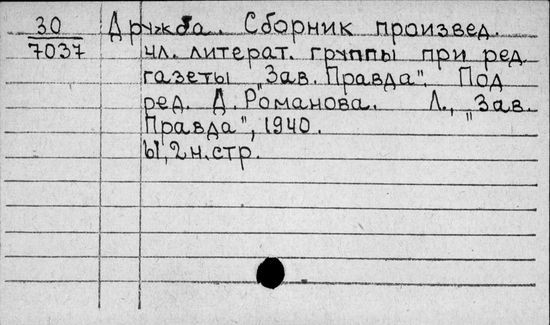 30
7037
Дружба. Сборник произвед.
чл. литерат. группы при ред.
газеты "Зав. Правда". Под
ред. Д. Романова. Л., "Зав.
Правда", 1940.
2 н. стр.